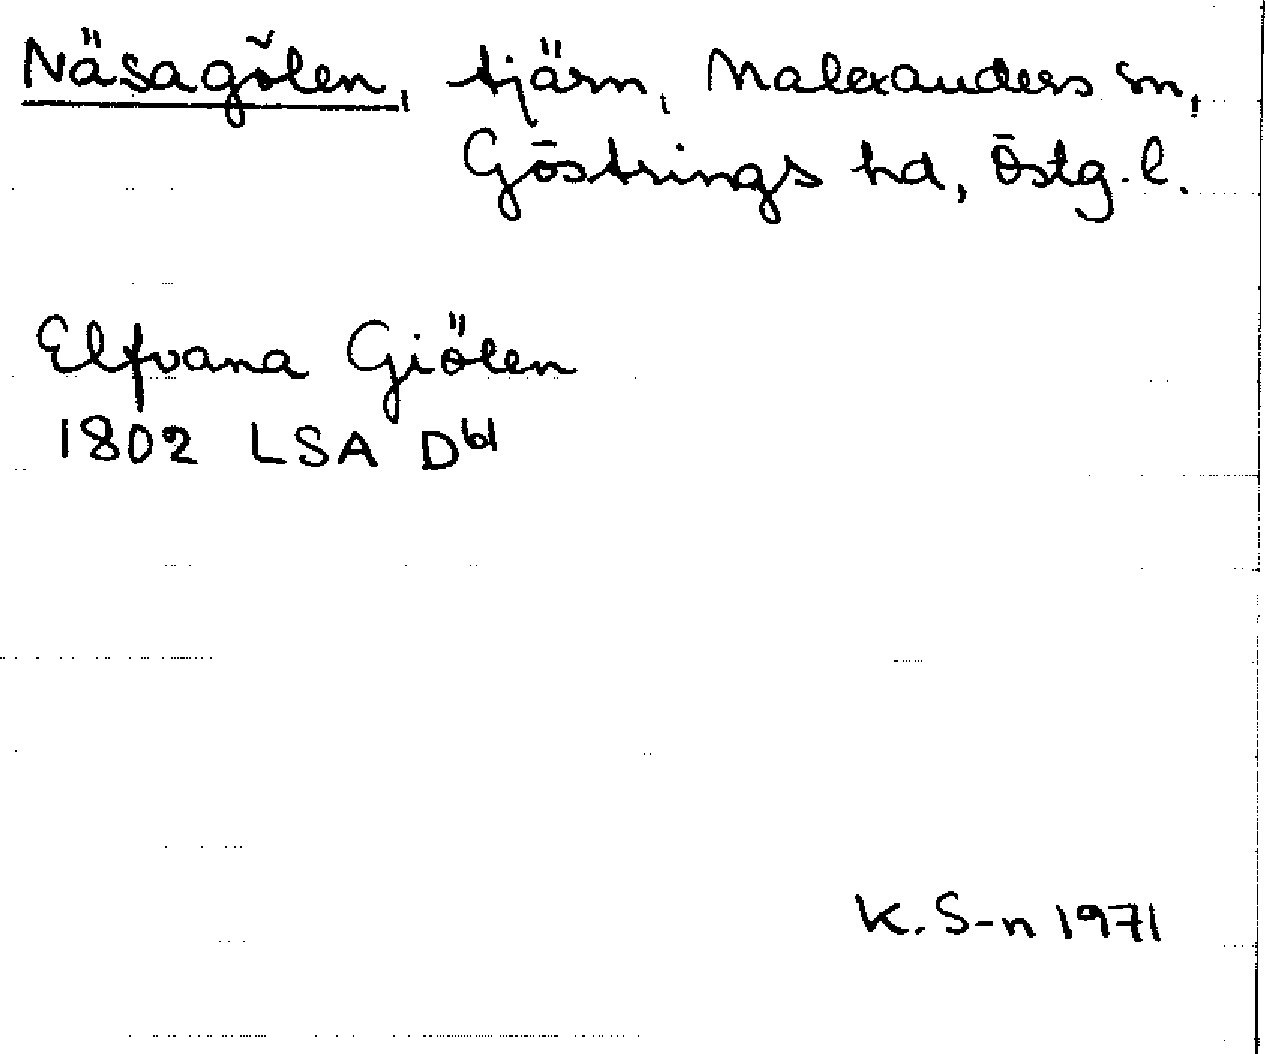 Näsagölen, tjärn, Malexanders sn,
Göstrings hd, Östg. l.
Elfvana Giölen
1802 LSA D61
K. S-n 1971